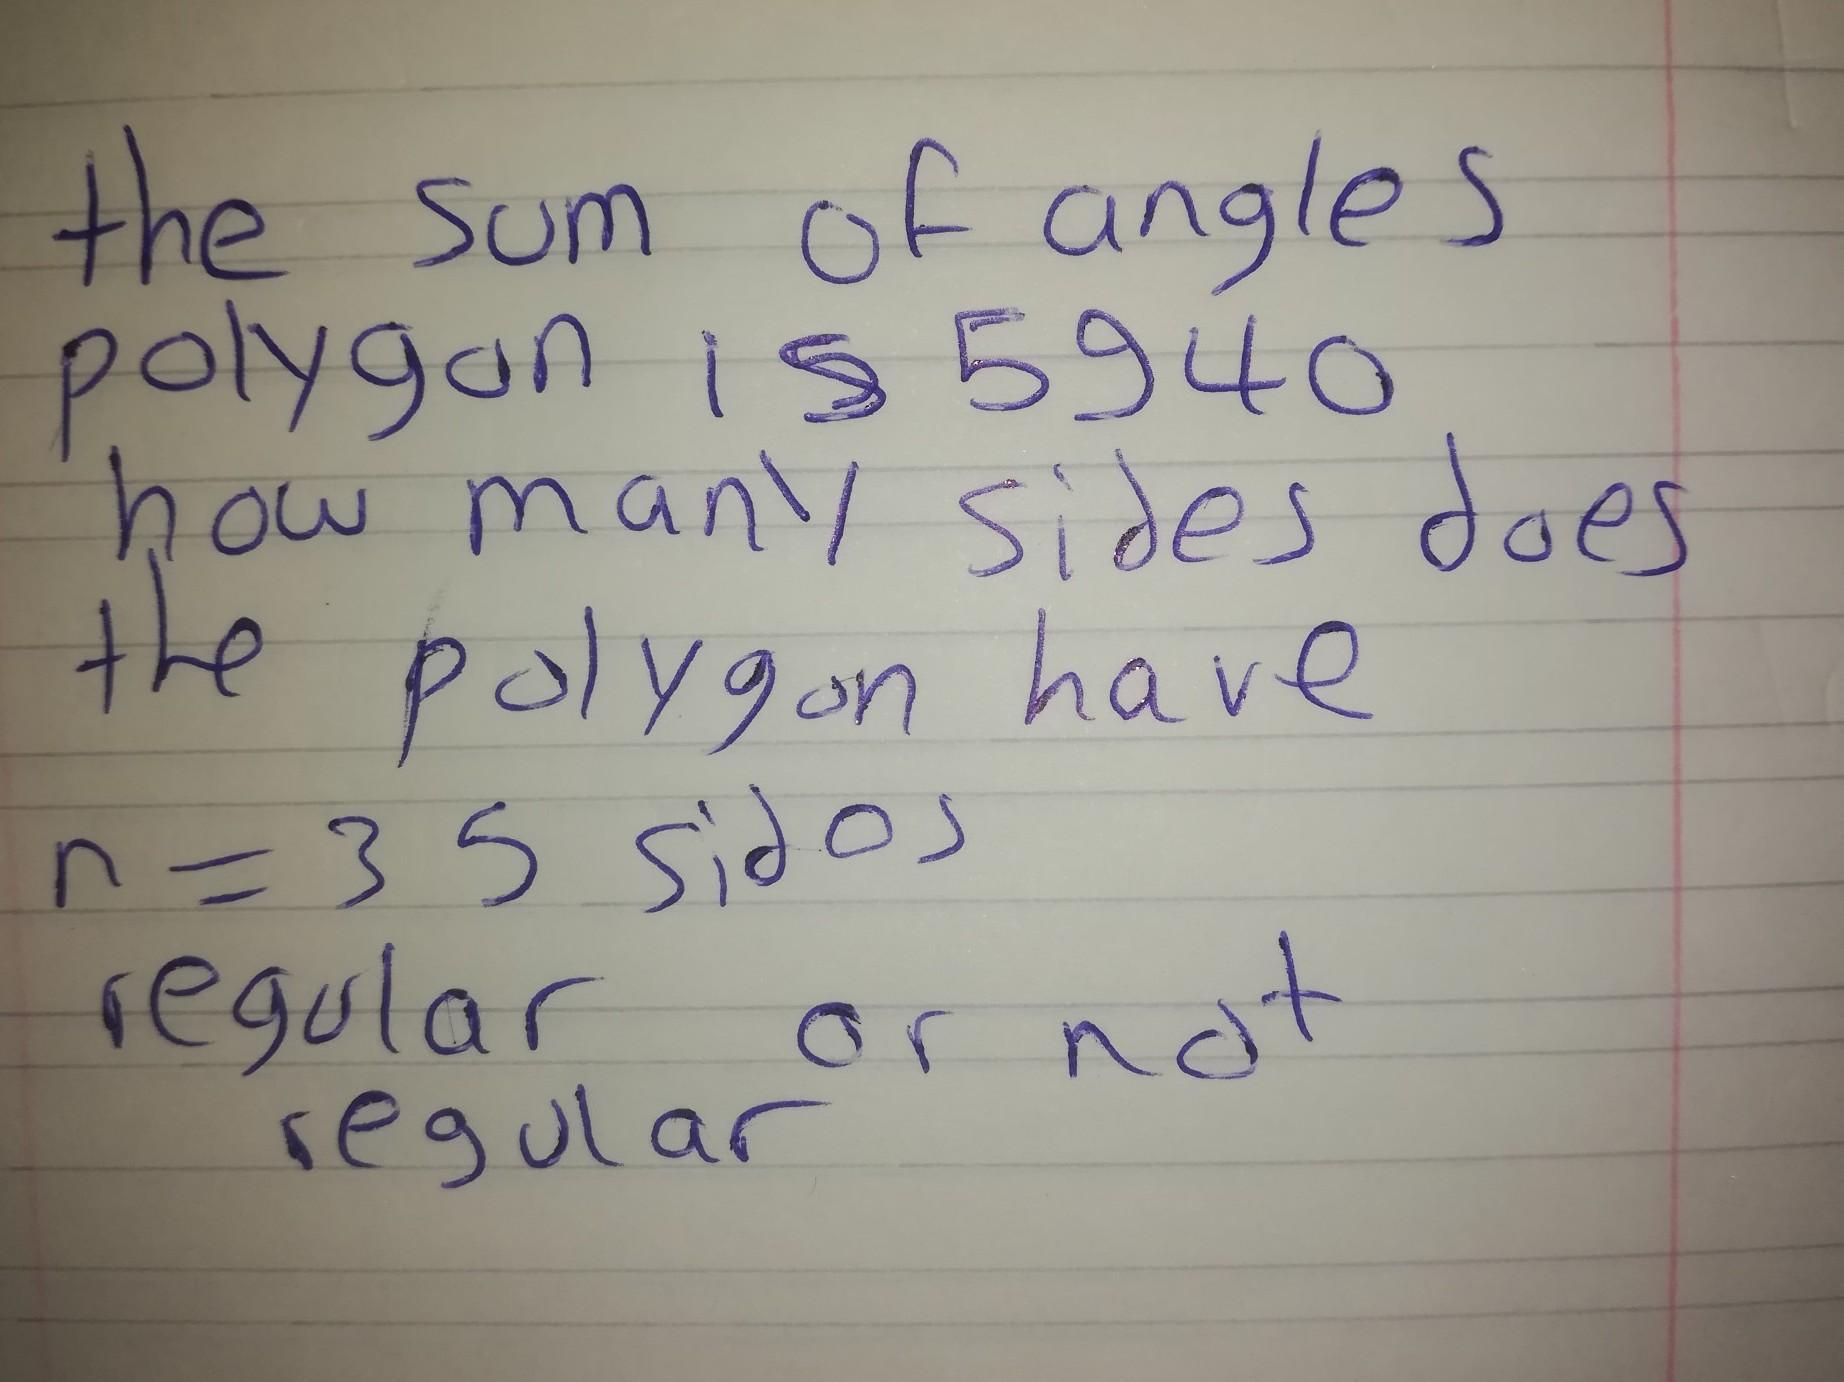 the sum of angles
polygon is 5940
how many sides does
the polygon have
n = 35 sidos
regular or not
regular